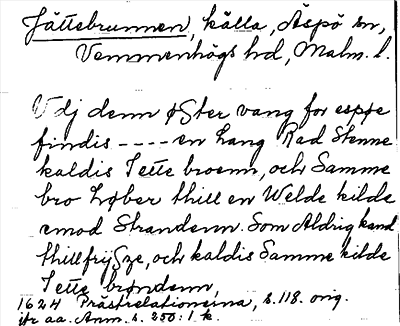 Jättebrunnen, källa, Äspö sn,
Vemmenhögs hd, Malm. l.
Udj denn øster vang for espøe
findis ---- en Lang Rad Stenne
kaldis Jette broenn, och Samme
bro Løber thill en Welde kilde
emod Strandenn. Som Aldrig kand
thillfrijsze, och kaldis Samme kilde
Jette brøndenn,
1624 Prästrelationerna, s. 118. orig.
jfr aa. Anm. s. 250: 1. k.